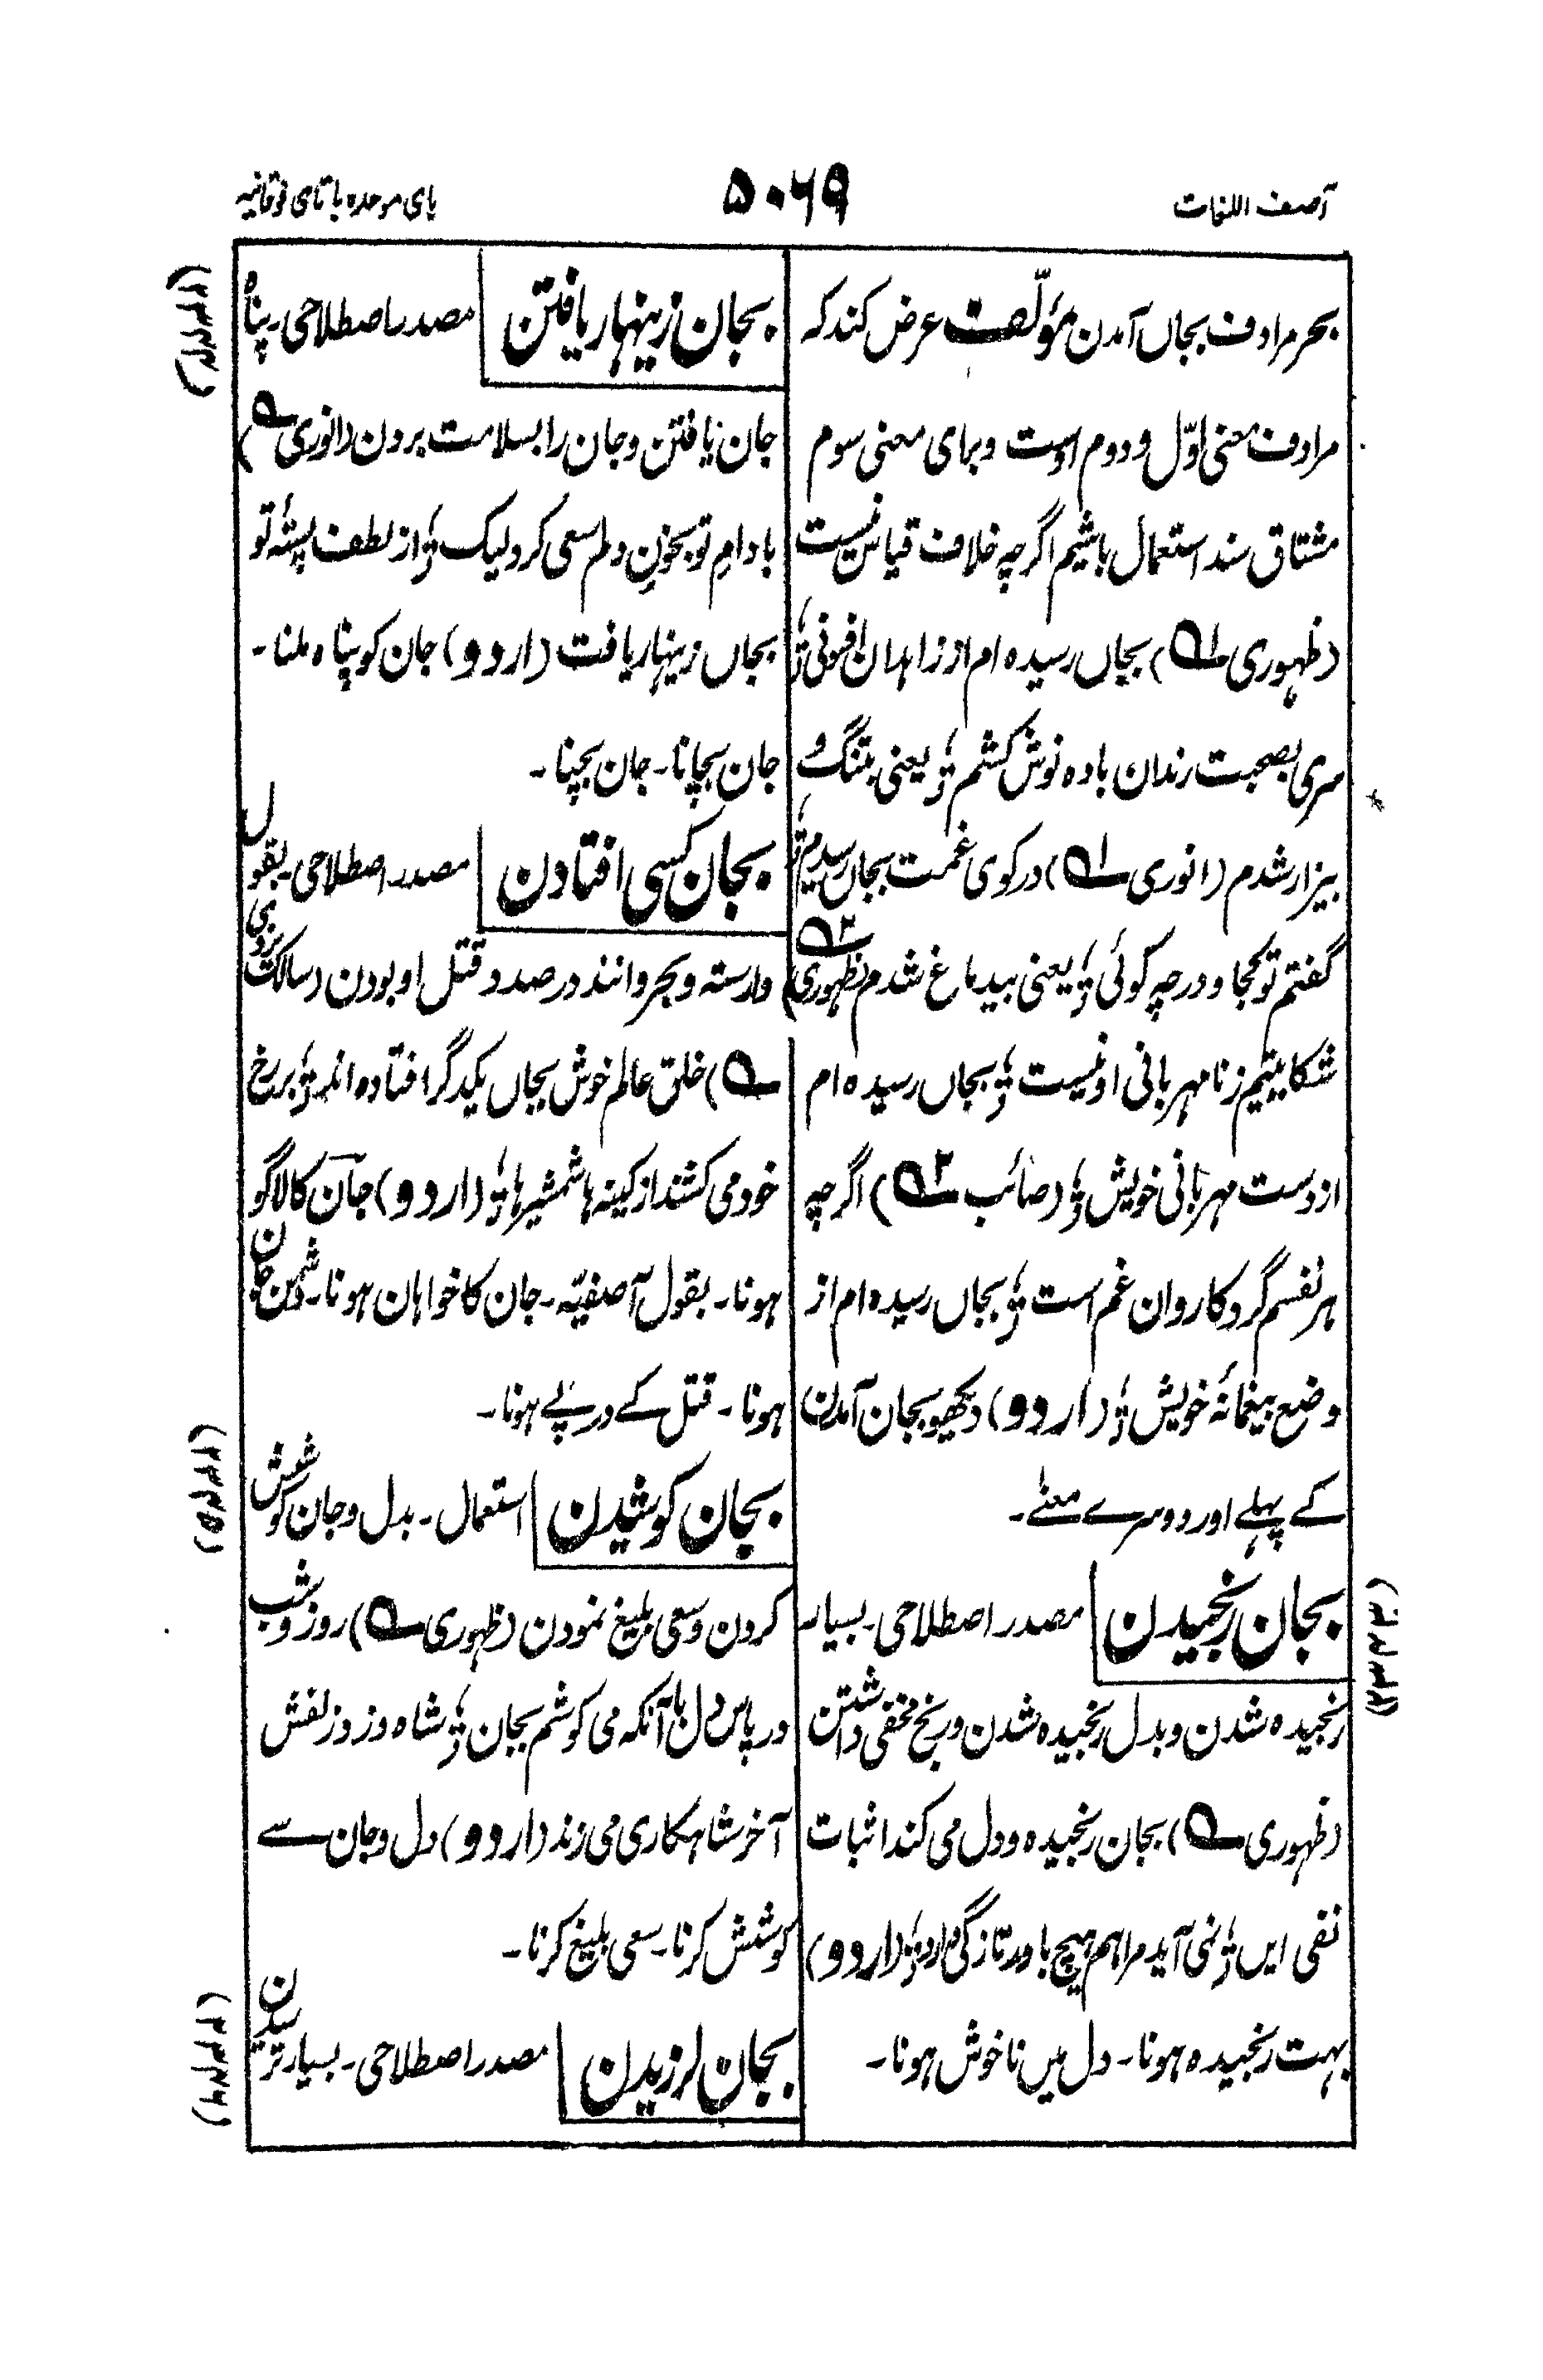 آصف اللغات
۵۰۶۹
بای موحده با تای فوقانیه
بحر مرادف بجاں آمدن مؤلّف عرض کند که
مرادف معنی اوّل و دوم اوست و برای معنی سوم
مشتاق سند استعمال باشیم اگرچه خلاف قیاس نیست
(ظهوری ۱؎) بجاں رسیده ام از زاهدان افونی ؤ
سری بصحبت رندان باده نوش کشم ؤ یعنی بتنگ و
بیزار شدم (انوری ۱؎) در کوی غمت بجاں رسیدم ؤ
گفتم تو کجا و در چه کوئی ؤ یعنی بیدماغ شدم (ظهوری ۲؎)
شکایتیم ز نامهربانی او نیست ؤ بجاں رسیده ام
از دست مهربانی خویش ؤ (صائب ۲؎) اگرچه
هر نفسم گرد کاروان غم است ؤ بجاں رسیده ام از
وضع بیغمانهٔ خویش ؤ (اردو) دیکھو بجان آمدن
کے پہلے اور دوسرے معنے۔
بجان رنجیدن | مصدر اصطلاحی۔ بسیار
رنجیده شدن و بدل رنجیده شدن و رنج مخفی داشتن
(ظهوری ؎) بجان رنجیده و دل می کند اثبات
نفی ایں ؤ نمی آید مرا هم هیچ باور تازگی دارد ؤ (اردو)
بہت رنجیدہ ہونا۔ دل میں ناخوش ہونا۔
بجان زینهار یافتن | مصدر اصطلاحی۔ پناه
جان یافتن و جان را بسلامت بردن (انوری ؎)
بادامِ تو بخونِ دلم سعی کرد لیک ؤ از لطف پستهٔ تو
بجاں زینهار یافت (اردو) جان کو پناہ ملنا۔
جان بچانا۔ جان بچنا۔
بجان کسی افتادن | مصدر اصطلاحی۔ بقول
وارسته و بحر و انند در صدد قتل او بودن (سالک یزدی
؎) خلق عالم خوش بجاں یکدگر افتاده اند ؤ بر رخ
خود می کشند از کینه ها شمشیرها ؤ (اردو) جان کا لاگو
ہونا۔ بقول آصفیّہ۔ جان کا خواہان ہونا۔ دشمن جان
ہونا۔ قتل کے درپے ہونا۔
بجان کوشیدن | استعمال۔ بدل و جان کوشش
کردن و سعی بلیغ نمودن (ظهوری ؎) روز و شب
در پاس دل با آنکه می کوشم بجان ؤ شاه دزد زلفش
آخر شاهکاری می زند (اردو) دل و جان سے
کوشش کرنا۔ سعی بلیغ کرنا۔
بجان لرزیدن | مصدر اصطلاحی۔ بسیار ترسیدن